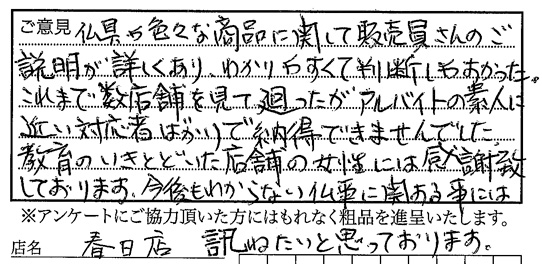 ご意見 仏具や色々な商品に関して販売員さんのご
説明が詳しくあり、わかりやすくて判断しやすかった。
これまで数店舗を見て廻ったがアルバイトの素人に
近い対応者ばかりで納得できませんでした。
教育のいきとどいた店舗の女性には感謝致
しております。今後もわからない仏事に関する事には
※アンケートにご協力頂いた方にはもれなく粗品を進呈いたします。
店名 春日店 訊ねたいと思っております。